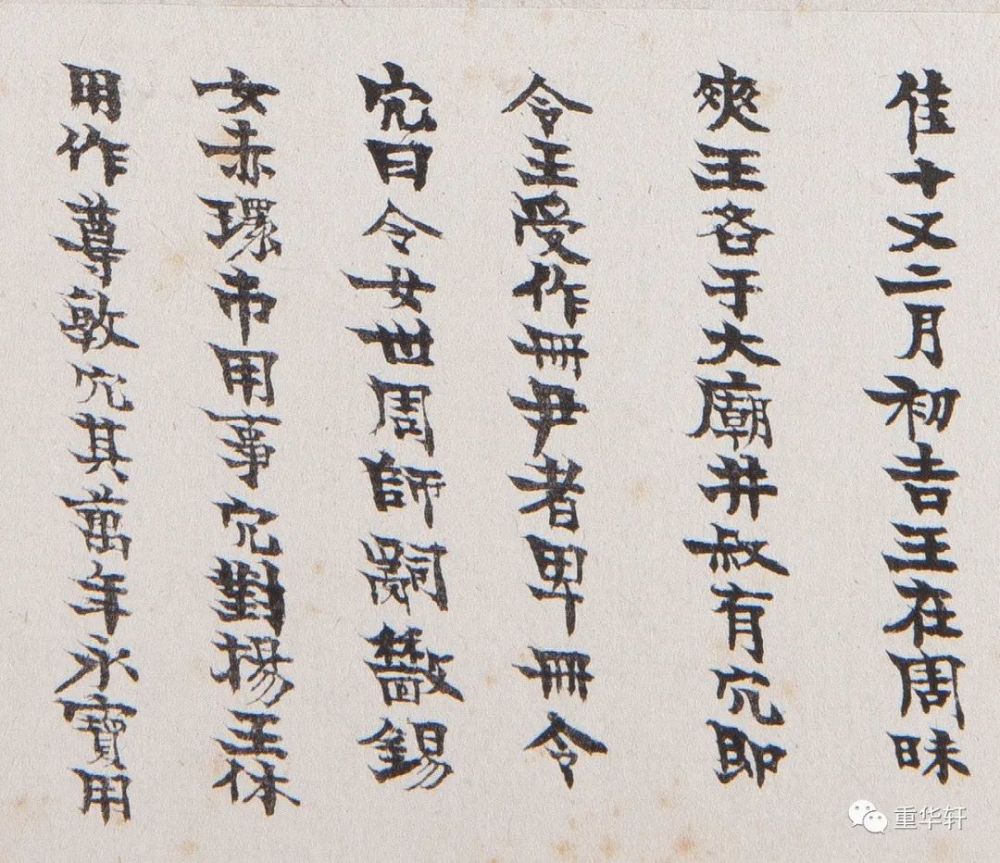 隹十又二月初吉王在周昧
爽王各于大廟井叔有冗即
令王受作冊尹者卑冊令
冗曰令女世周師嗣歠錫
女赤環巿用事冗對揚王休
用作尊敦冗其萬年永寶用
重华轩